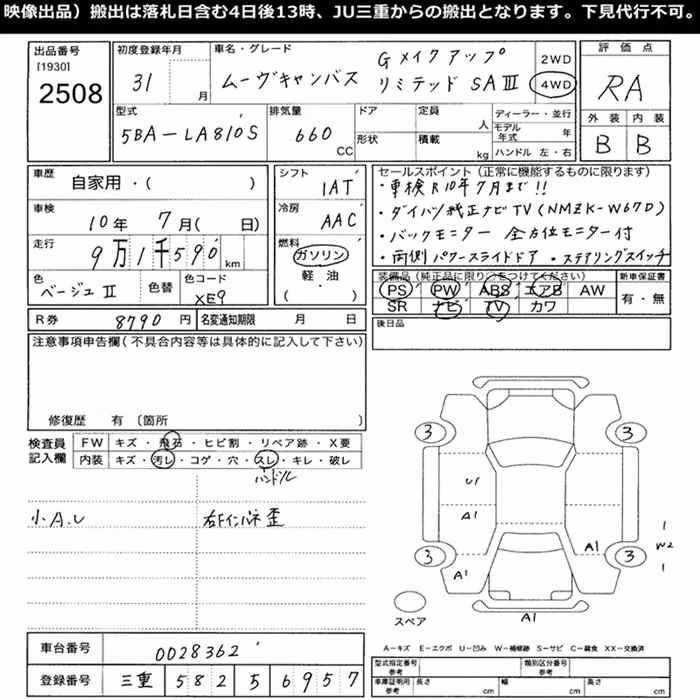 映像出品）搬出は落札日含む4日後13時、JU三重からの搬出となります。下見代行不可。
出品番号
[1930]
2508
初度登録年月
31 月
車名・グレード
ムーヴキャンバス Gメイクアップ リミテッド SAⅢ
2WD
4WD
評価点
RA
外装 内装
B B
型式
5BA-LA810S
排気量
660 CC
ドア
形状
定員 人
積載 kg
ディーラー・並行
モデル年式 年
ハンドル 左・右
車歴
自家用・( )
車検
10年 7月( 日)
走行
9万1千590km
色
ベージュⅡ
色替
色コード
XE9
シフト
IAT
冷房
AAC
燃料
ガソリン
軽・油
( )
セールスポイント（正常に機能するものに限ります）
・車検R10年7月まで!!
・ダイハツ純正ナビTV(NMZK-W67D)
・バックモニター 全方位モニター付
・両側パワースライドドア ・ステアリングスイッチ
装備品（純正品に限り○をつけてください）
PS PW ABS エアB AW
SR ナビ TV カワ
新車保証書
有・無
R券 8790円
名変通知期限 月 日
後日品
注意事項申告欄（不具合内容等は具体的に記入して下さい）
修復歴 有 〔箇所 〕
検査員記入欄
FW キズ・飛石・ヒビ割・リペア跡・X要
内装 キズ・汚レ・コゲ・穴・スレ・キレ・破レ
ハンドル
小A.U
右Fインパネ歪
3 3
U1
A1
A1
3 3
A1
A1
1
W2
1
スペア
車台番号 0028362
登録番号 三重 582 5 6957
A－キズ E－エクボ U－凹み W－補修跡 S－サビ C－腐食 XX－交換済
型式指定番号 参考
類別区分番号 参考
車庫証明用 参考
長さ cm
幅 cm
高さ cm